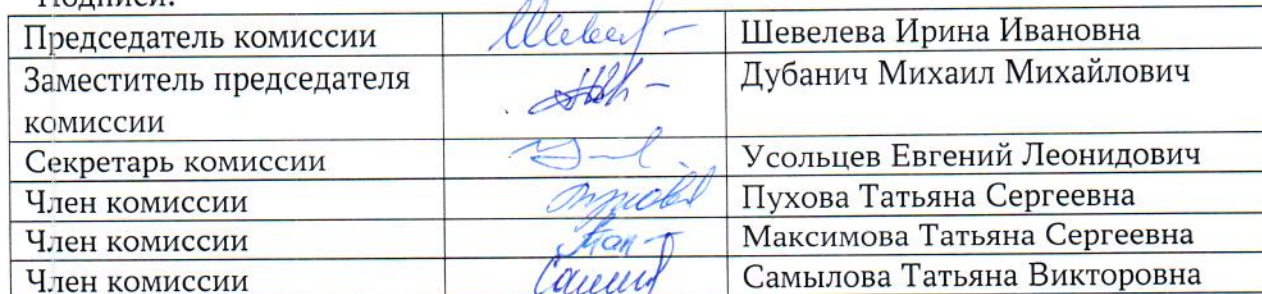 Подписи:
Председатель комиссии Шевелева Ирина Ивановна
Заместитель председателя Дубанич Михаил Михайлович
комиссии
Секретарь комиссии Усольцев Евгений Леонидович
Член комиссии Пухова Татьяна Сергеевна
Член комиссии Максимова Татьяна Сергеевна
Член комиссии Самылова Татьяна Викторовна